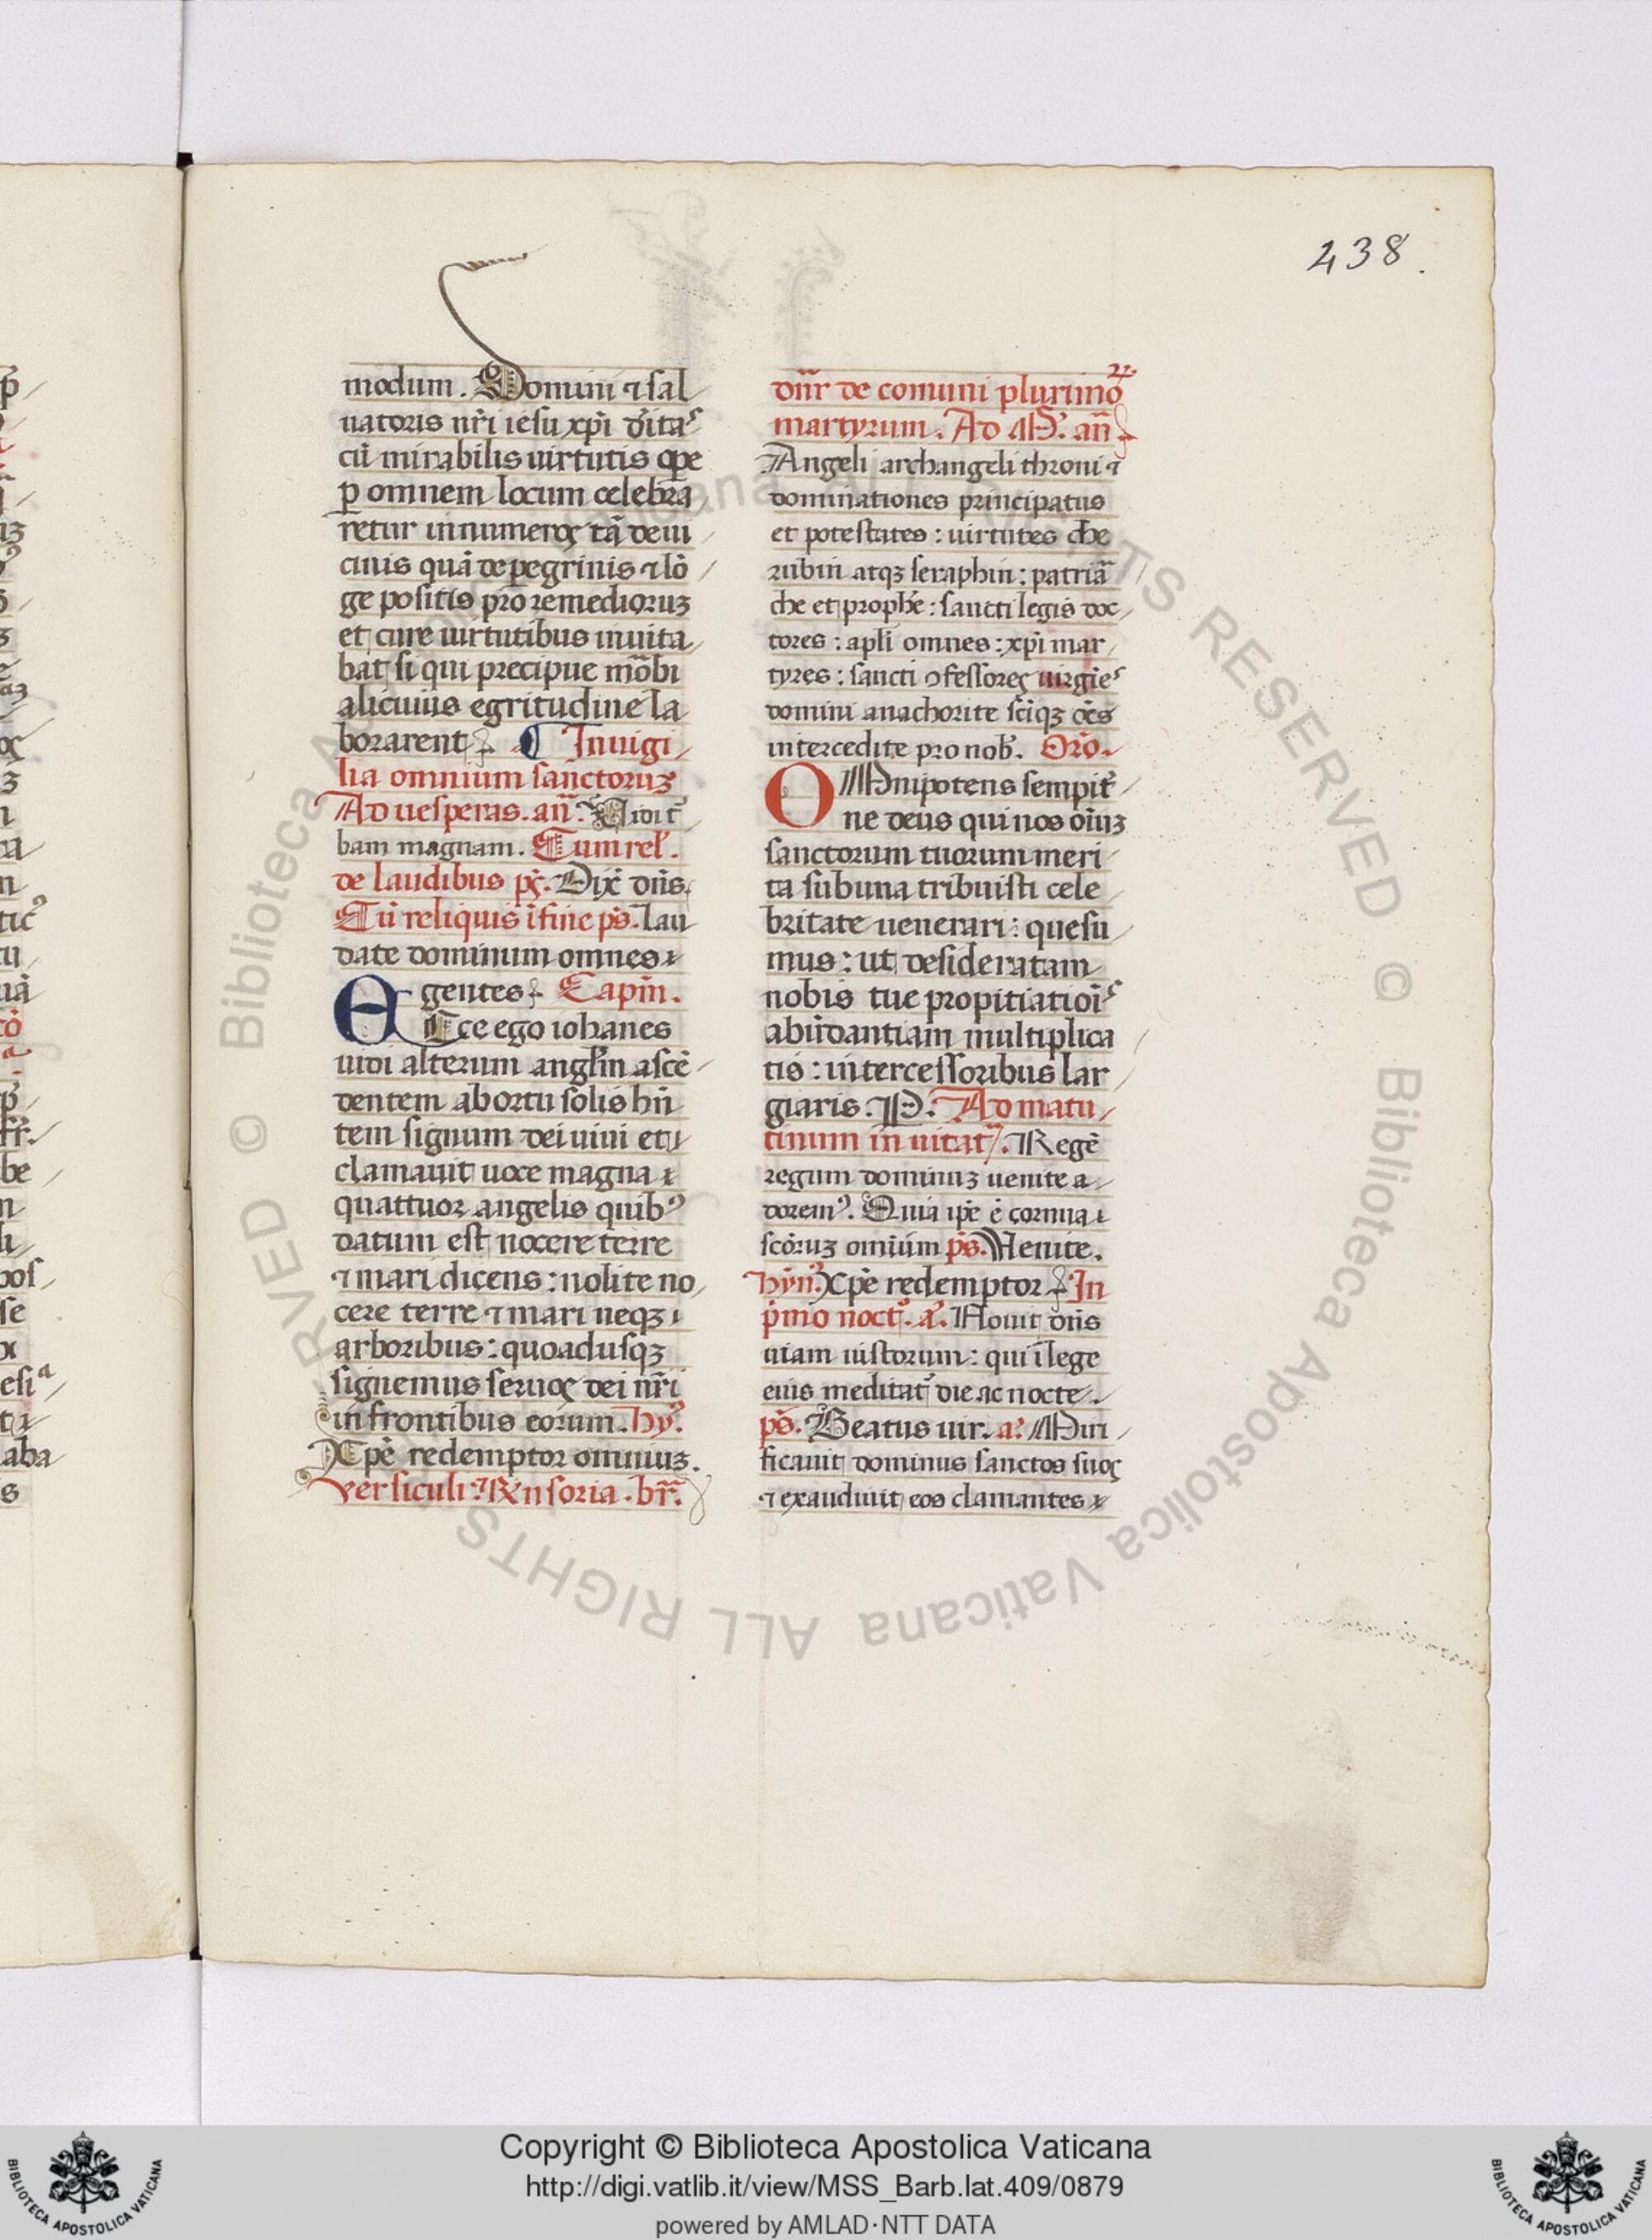 438.
modum. Domini ⁊ sal
uatoris nr̄i iesu xp̄i
cū mirabilis uirtutis
ꝑ omnem locum celebra
retur tā de ui
cinis quā de peregrinis ⁊ lō
ge positis pro remedioruꝫ
et cure uirtutibus inuita
bat si qui precipue mōbi
alicuius egritudine la
borarent In uigi
lia omnium sanctoruꝫ
Ad uesperas. an̄. Vidi t̄
bam magnam. Cum rel'.
de laudibus ps̄. Dix̄ dn̄s.
Cū reliquis ī fine ps̄. Lau
date dominum omnes
gentes Capin̄.
Ecce ego iohanes
uidi alterum angl̄m ascē
dentem ab ortu solis hn̄
tem signum dei uiui et
clamauit uoce magna
quattuor angelis quibꝰ
datum est nocere terre
⁊ mari dicens: nolite no
cere terre ⁊ mari neqꝫ
arboribus: quoadusqꝫ
signemus seruos dei nr̄i
in frontibus eorum. Hyꝰ.
Xp̄e redemptor omniuꝫ.
versiculi ⁊ Rn̄soria. br̄.
dn̄r de comuni plurimoꝝ
martyrum. Ad M. an̄
Angeli archangeli throni ⁊
dominationes principatus
et potestates: uirtutes che
rubin atqꝫ seraphin: patriā
che et prophe: sancti legis doc
tores: apl̄i omnes: xp̄i mar
tyres: sancti ꝯfessores uirgīes
domini anachorite scīqꝫ oēs
intercedite pro nob̄. Orō.
OMnipotens sempit̄
ne deus qui nos oīuꝫ
sanctorum tuorum meri
ta sub una tribuisti cele
britate uenerari: quesu
mus: ut desideratam
nobis tue propitiatiōis
abūdantiam multiplica
tis: intercessoribus lar
giaris. P. Ad matu
tinum in uitat. Regē
regum dominuꝫ uenite a
doremꝰ. Quia ip̄e ē corona
scōruꝫ omīum ps̄. Venite.
hȳn. Xp̄e redemptor In
pīno noct̄. a. Nouit dn̄s
uiam iustorum: qui ī lege
eius meditat̄ die ac nocte.
ps̄. Beatus uir. a. Miri
ficauit dominus sanctos suos
⁊ exaudiuit eos clamantes
© Biblioteca Apostolica Vaticana ALL RIGHTS RESERVED © Biblioteca Apostolica Vaticana ALL RIGHTS RESERVED
Copyright © Biblioteca Apostolica Vaticana
http://digi.vatlib.it/view/MSS_Barb.lat.409/0879
powered by AMLAD·NTT DATA
BIBLIOTECA APOSTOLICA VATICANA
BIBLIOTECA APOSTOLICA VATICANA